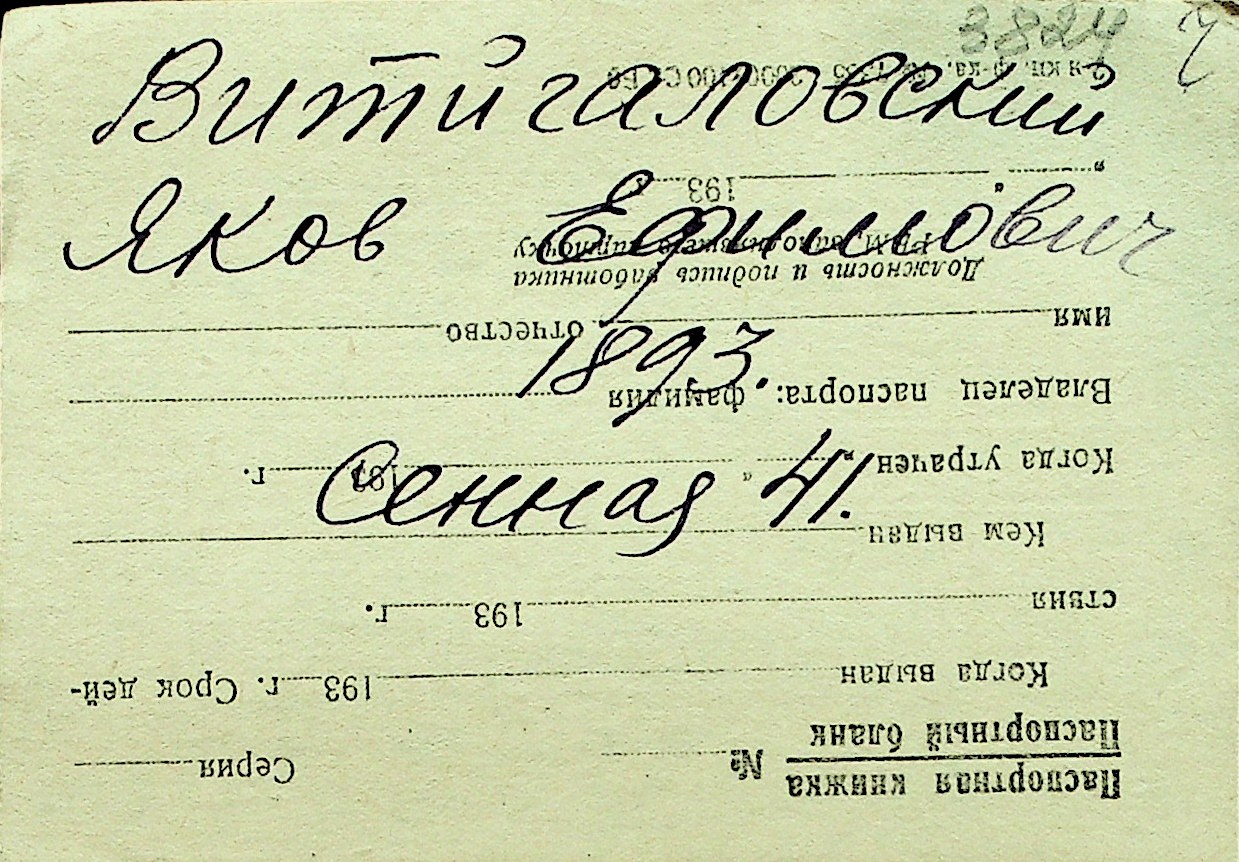 3824
Витигаловский
Яков Ефимович
1893.
Сенная 41.
Паспортная книжка
Паспортный бланк
№ Серия
Когда выдан 193 г. Срок дей-
ствия 193 г.
Кем выдан
Когда утрачен " " 193 г.
Владелец паспорта: фамилия
имя отчество
Должность и подпись работника
РКМ,
карточку
" " 193